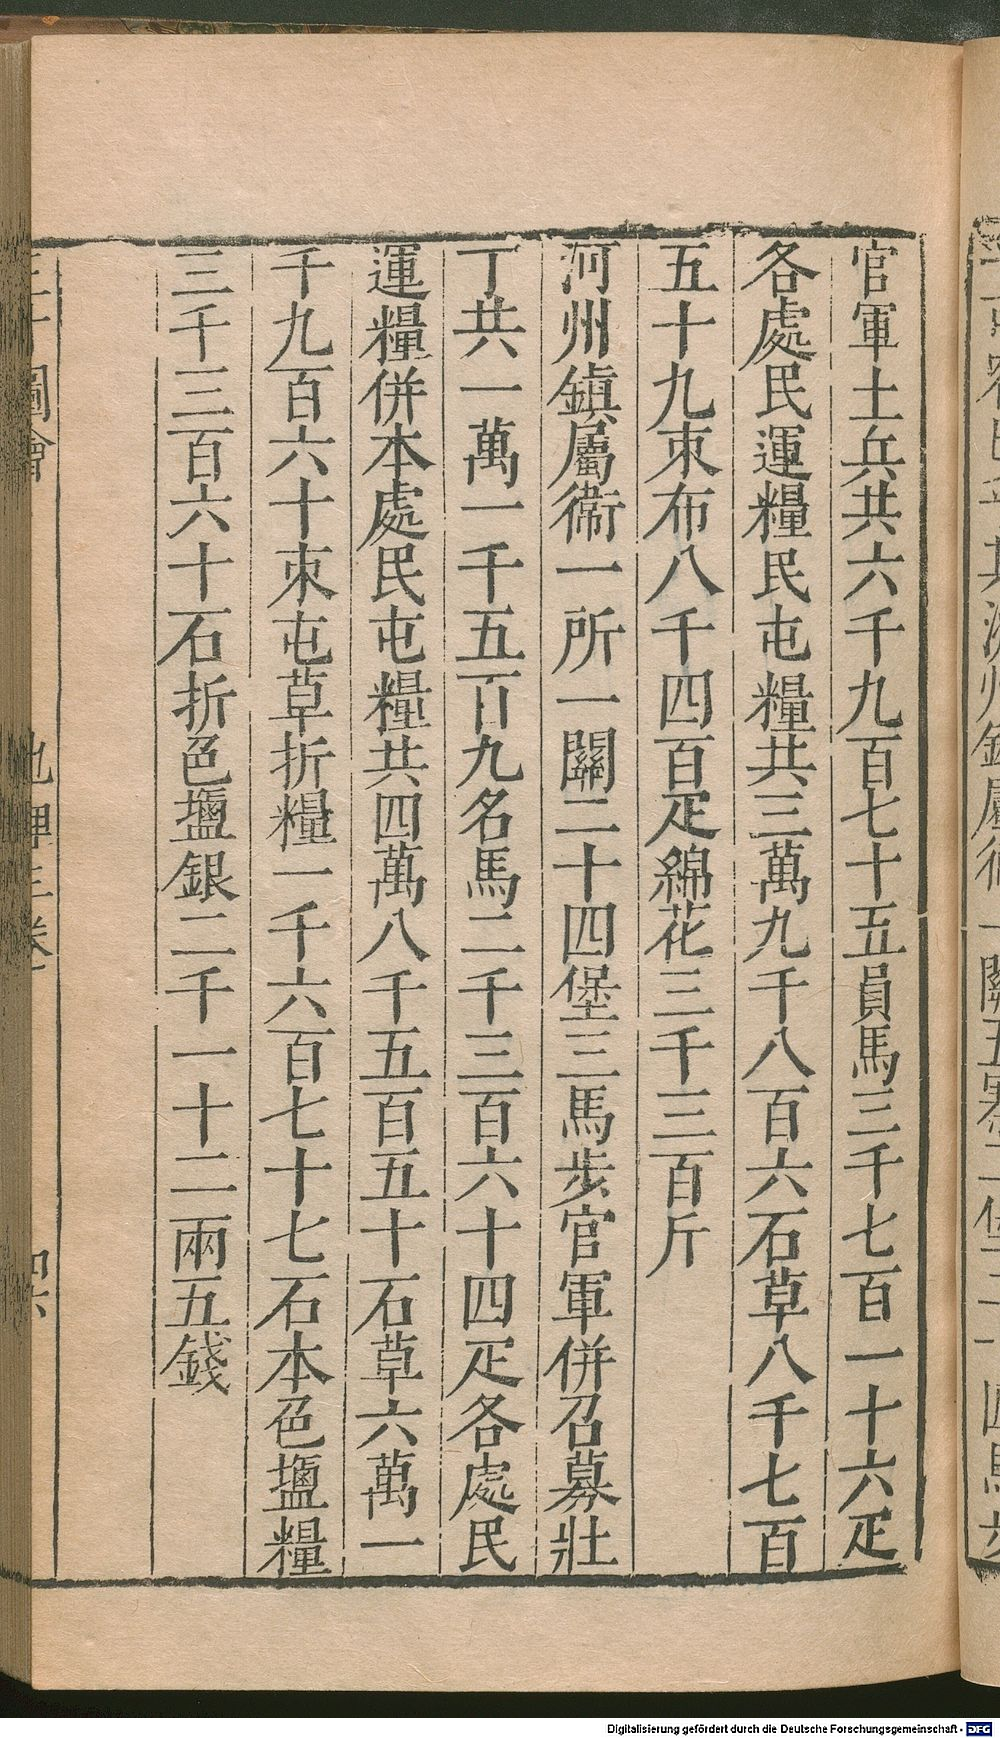 官軍土兵共六千九百七十五員馬三千七百一十六疋
各處民運糧民屯糧共三萬九千八百六石草八千七百
五十九束布八千四百疋綿花三千三百斤
河州鎮屬衞一所一關二十四堡三馬步官軍併召募壯
丁共一萬一千五百九名馬二千三百六十四疋各處民
運糧併本處民屯糧共四萬八千五百五十石草六萬一
千九百六十束屯草折糧一千六百七十七石本色鹽糧
三千三百六十石折色鹽銀二千一十二兩五錢
圖會
Digitalisierung gefördert durch die Deutsche Forschungsgemeinschaft - DFG